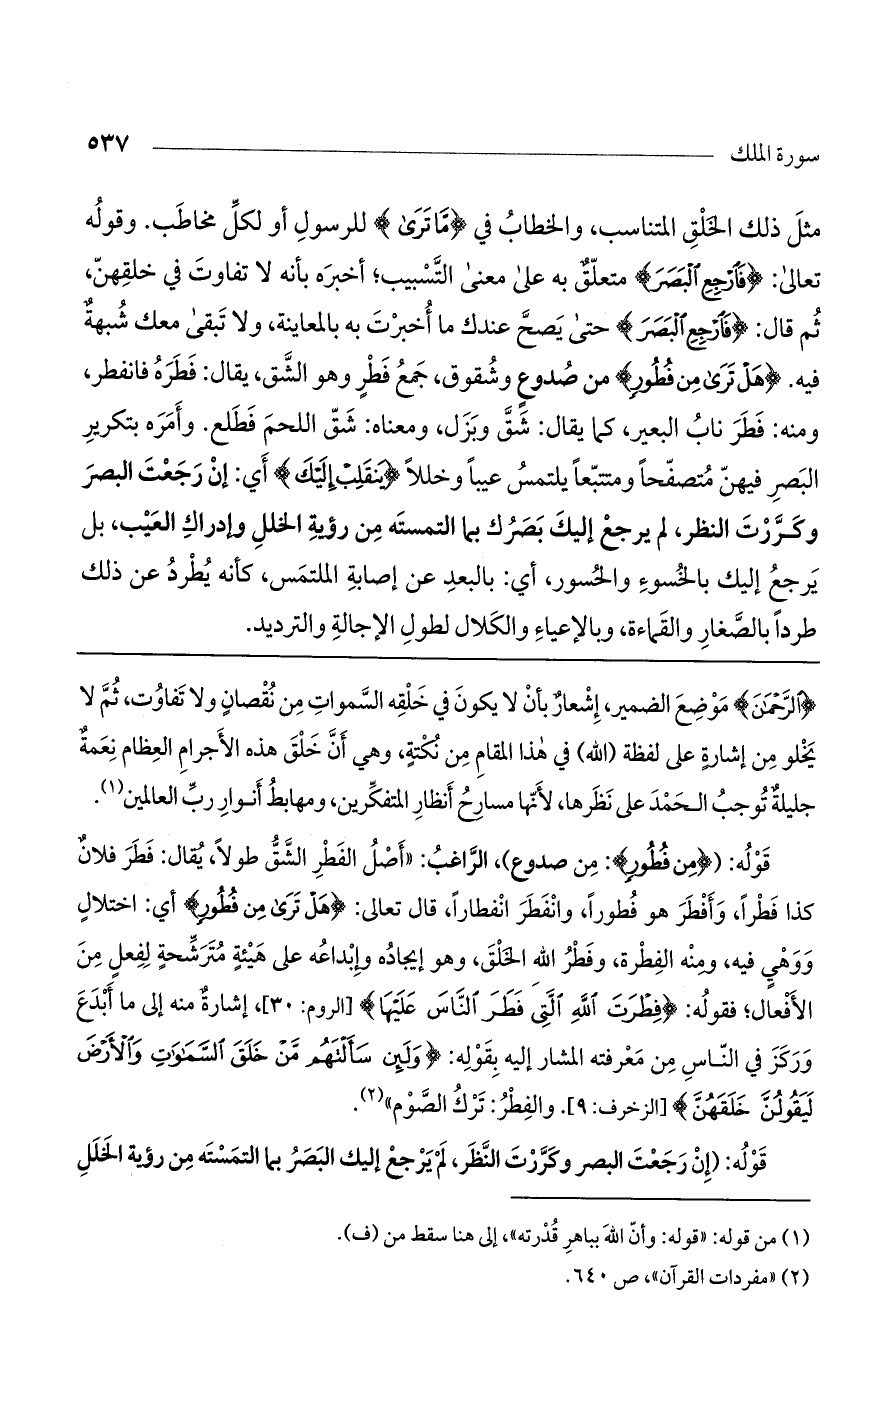 سورة الملك ٥٣٧
مثلَ ذلك الخَلْقِ المتناسب، والخطابُ في ﴿مَّا تَرَىٰ﴾ للرسولِ أو لكلِّ مخاطَب. وقولُه
تعالىٰ: ﴿فَٱرْجِعِ ٱلْبَصَرَ﴾ متعلّقٌ به علىٰ معنىٰ التَّسْبيب؛ أخبرَه بأنه لا تفاوتَ في خلقِهنّ،
ثُم قال: ﴿فَٱرْجِعِ ٱلْبَصَرَ﴾ حتىٰ يَصحَّ عندك ما أُخبرْتَ به بالمعاينة، ولا تَبقىٰ معك شُبهةٌ
فيه. ﴿هَلْ تَرَىٰ مِن فُطُورٍ﴾ من صُدوعٍ وشُقوق، جَمعُ فَطْرٍ وهو الشَّق، يقال: فَطَرَهُ فانفطر،
ومنه: فَطَرَ نابُ البعير، كما يقال: شَقَّ وبَزَل، ومعناه: شَقّ اللحمَ فَطَلع. وأمَرَه بتكريرِ
البَصَرِ فيهنّ مُتصفّحاً ومتتبّعاً يلتمسُ عيباً وخللاً ﴿يَنقَلِبْ إِلَيْكَ﴾ أي: إنْ رَجَعْتَ البصرَ
وكَـرَّرْتَ النظر، لم يرجعْ إليكَ بَصَرُك بما التمستَه مِن رؤيةِ الخللِ وإدراكِ العَيْب، بل
يَرجعُ إليك بالخُسوءِ والحُسور، أي: بالبعدِ عن إصابةِ الملتمَس، كأنه يُطْردُ عن ذلك
طرداً بالصَّغارِ والقَماءة، وبالإعياءِ والكَلال لطولِ الإجالةِ والترديد.
﴿ٱلرَّحْمَٰنِ﴾ مَوْضِعَ الضمير، إشْعارٌ بأنْ لا يكونَ في خَلْقِه السَّمواتِ مِن نُقْصانٍ ولا تَفاوُت، ثُمَّ لا
يَخْلو مِن إشارةٍ على لفظة (الله) في هٰذا المقامِ مِن نُكْتةٍ، وهي أنَّ خَلْقَ هذه الأجرامِ العِظام نِعَمةٌ
جليلةٌ تُوجبُ الـحَمْدَ على نَظَرِها، لأنّها مسارحُ أنظارِ المتفكِّرين، ومهابطُ أنـوارِ ربِّ العالمين(١).
قَوْلُه: (﴿مِن فُطُورٍ﴾: مِن صدوع)، الرَّاغبُ: «أَصْلُ الفَطْرِ الشَّقُّ طولاً، يُقال: فَطَرَ فلانٌ
كذا فَطْراً، وَأَفْطَرَ هو فُطوراً، وانْفَطَرَ انْفطاراً، قال تعالى: ﴿هَلْ تَرَىٰ مِن فُطُورٍ﴾ أي: اختلالٍ
وَوَهْيٍ فيه، ومِنْه الفِطْرة، وفَطْرُ الله الخَلْقَ، وهو إيجادُه وإبْداعُه على هَيْئةٍ مُتَرشِّحةٍ لِفعلٍ مِنَ
الأَفْعال؛ فقولُه: ﴿فِطْرَتَ ٱللَّهِ ٱلَّتِى فَطَرَ ٱلنَّاسَ عَلَيْهَا﴾ [الروم: ٣٠]، إشارةٌ منه إلى ما أَبْدَعَ
وَرَكَزَ في النّـاسِ مِن مَعْرفته المشار إليه بِقَوْلِه: ﴿وَلَئِن سَأَلْتَهُم مَّنْ خَلَقَ ٱلسَّمَٰوَٰتِ وَٱلْأَرْضَ
لَيَقُولُنَّ خَلَقَهُنَّ﴾ [الزخرف: ٩]. والفِطْرُ: تَرْكُ الصَّوْم»(٢).
قَوْلُه: (إنْ رَجَعْتَ البصر وكَرَّرْتَ النَّظَر، لَمْ يَرْجعْ إليك البَصَرُ بما التمَسْتَه مِن رؤية الخَلَلِ
(١) من قوله: «قوله: وأنّ اللهَ بباهرِ قُدْرته»، إلى هنا سقط من (ف).
(٢) «مفردات القرآن»، ص ٦٤٠.